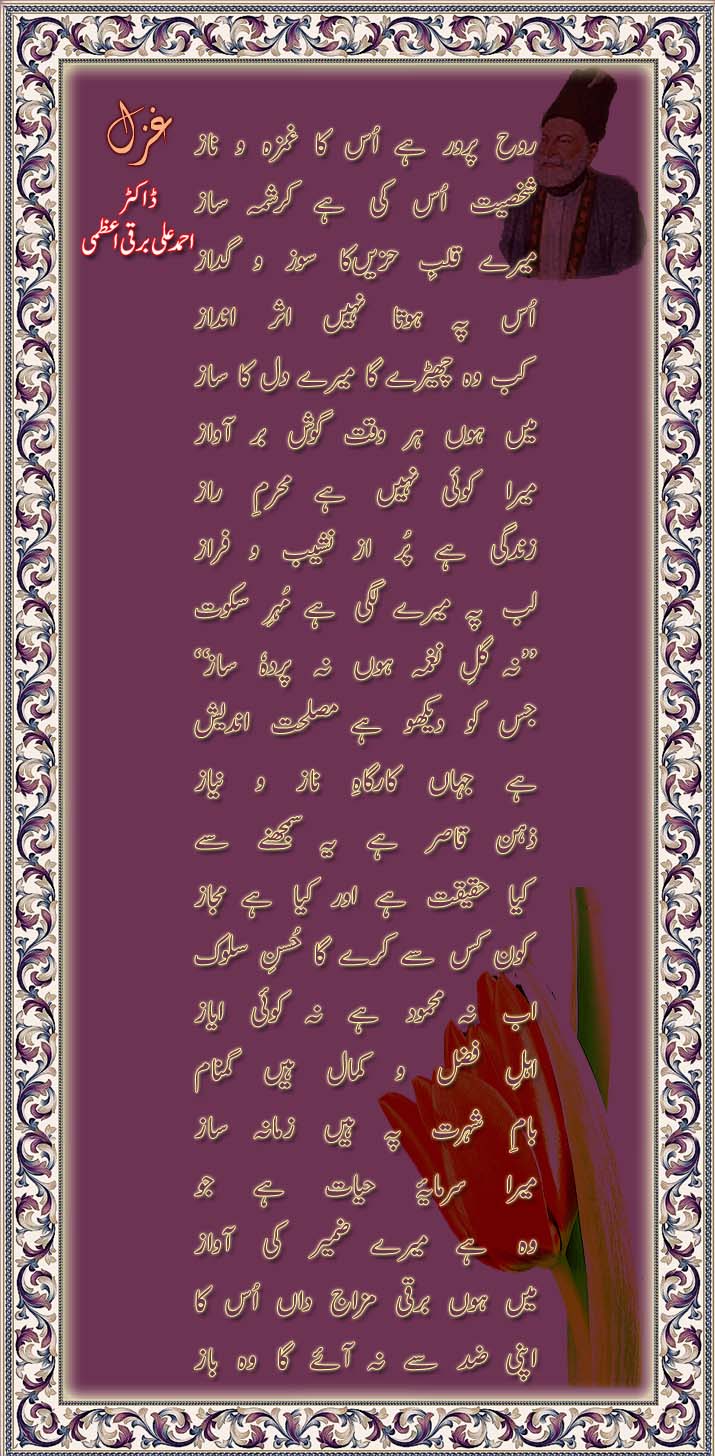 غزل
ڈاکٹر
احمد علی برقی اعظمی
روح پرور ہے اُس کا غمزہ و ناز
شخصیت اُس کی ہے کرشمہ ساز
میرے قلبِ حزیں کا سوز و گداز
اُس پہ ہوتا نہیں اثر انداز
کب وہ چھیڑے گا میرے دل کا ساز
میں ہوں ہر وقت گوش بر آواز
میرا کوئی نہیں ہے محرمِ راز
زندگی ہے پُر از نشیب و فراز
لب پہ میرے لگی ہے مُہرِ سکوت
’’نہ گلِ نغمہ ہوں نہ پردۂ ساز‘‘
جس کو دیکھو ہے مصلحت اندیش
ہے جہاں کارگاہِ ناز و نیاز
ذہن قاصر ہے یہ سمجھنے سے
کیا حقیقت ہے اور کیا ہے مجاز
کون کس سے کرے گا حُسنِ سلوک
اب نہ محمود ہے نہ کوئی ایاز
اہلِ فضل و کمال ہیں گمنام
بامِ شہرت پہ ہیں زمانہ ساز
میرا سرمایۂ حیات ہے جو
وہ ہے میرے ضمیر کی آواز
میں ہوں برقی مزاج داں اُس کا
اپنی ضد سے نہ آئے گا وہ باز